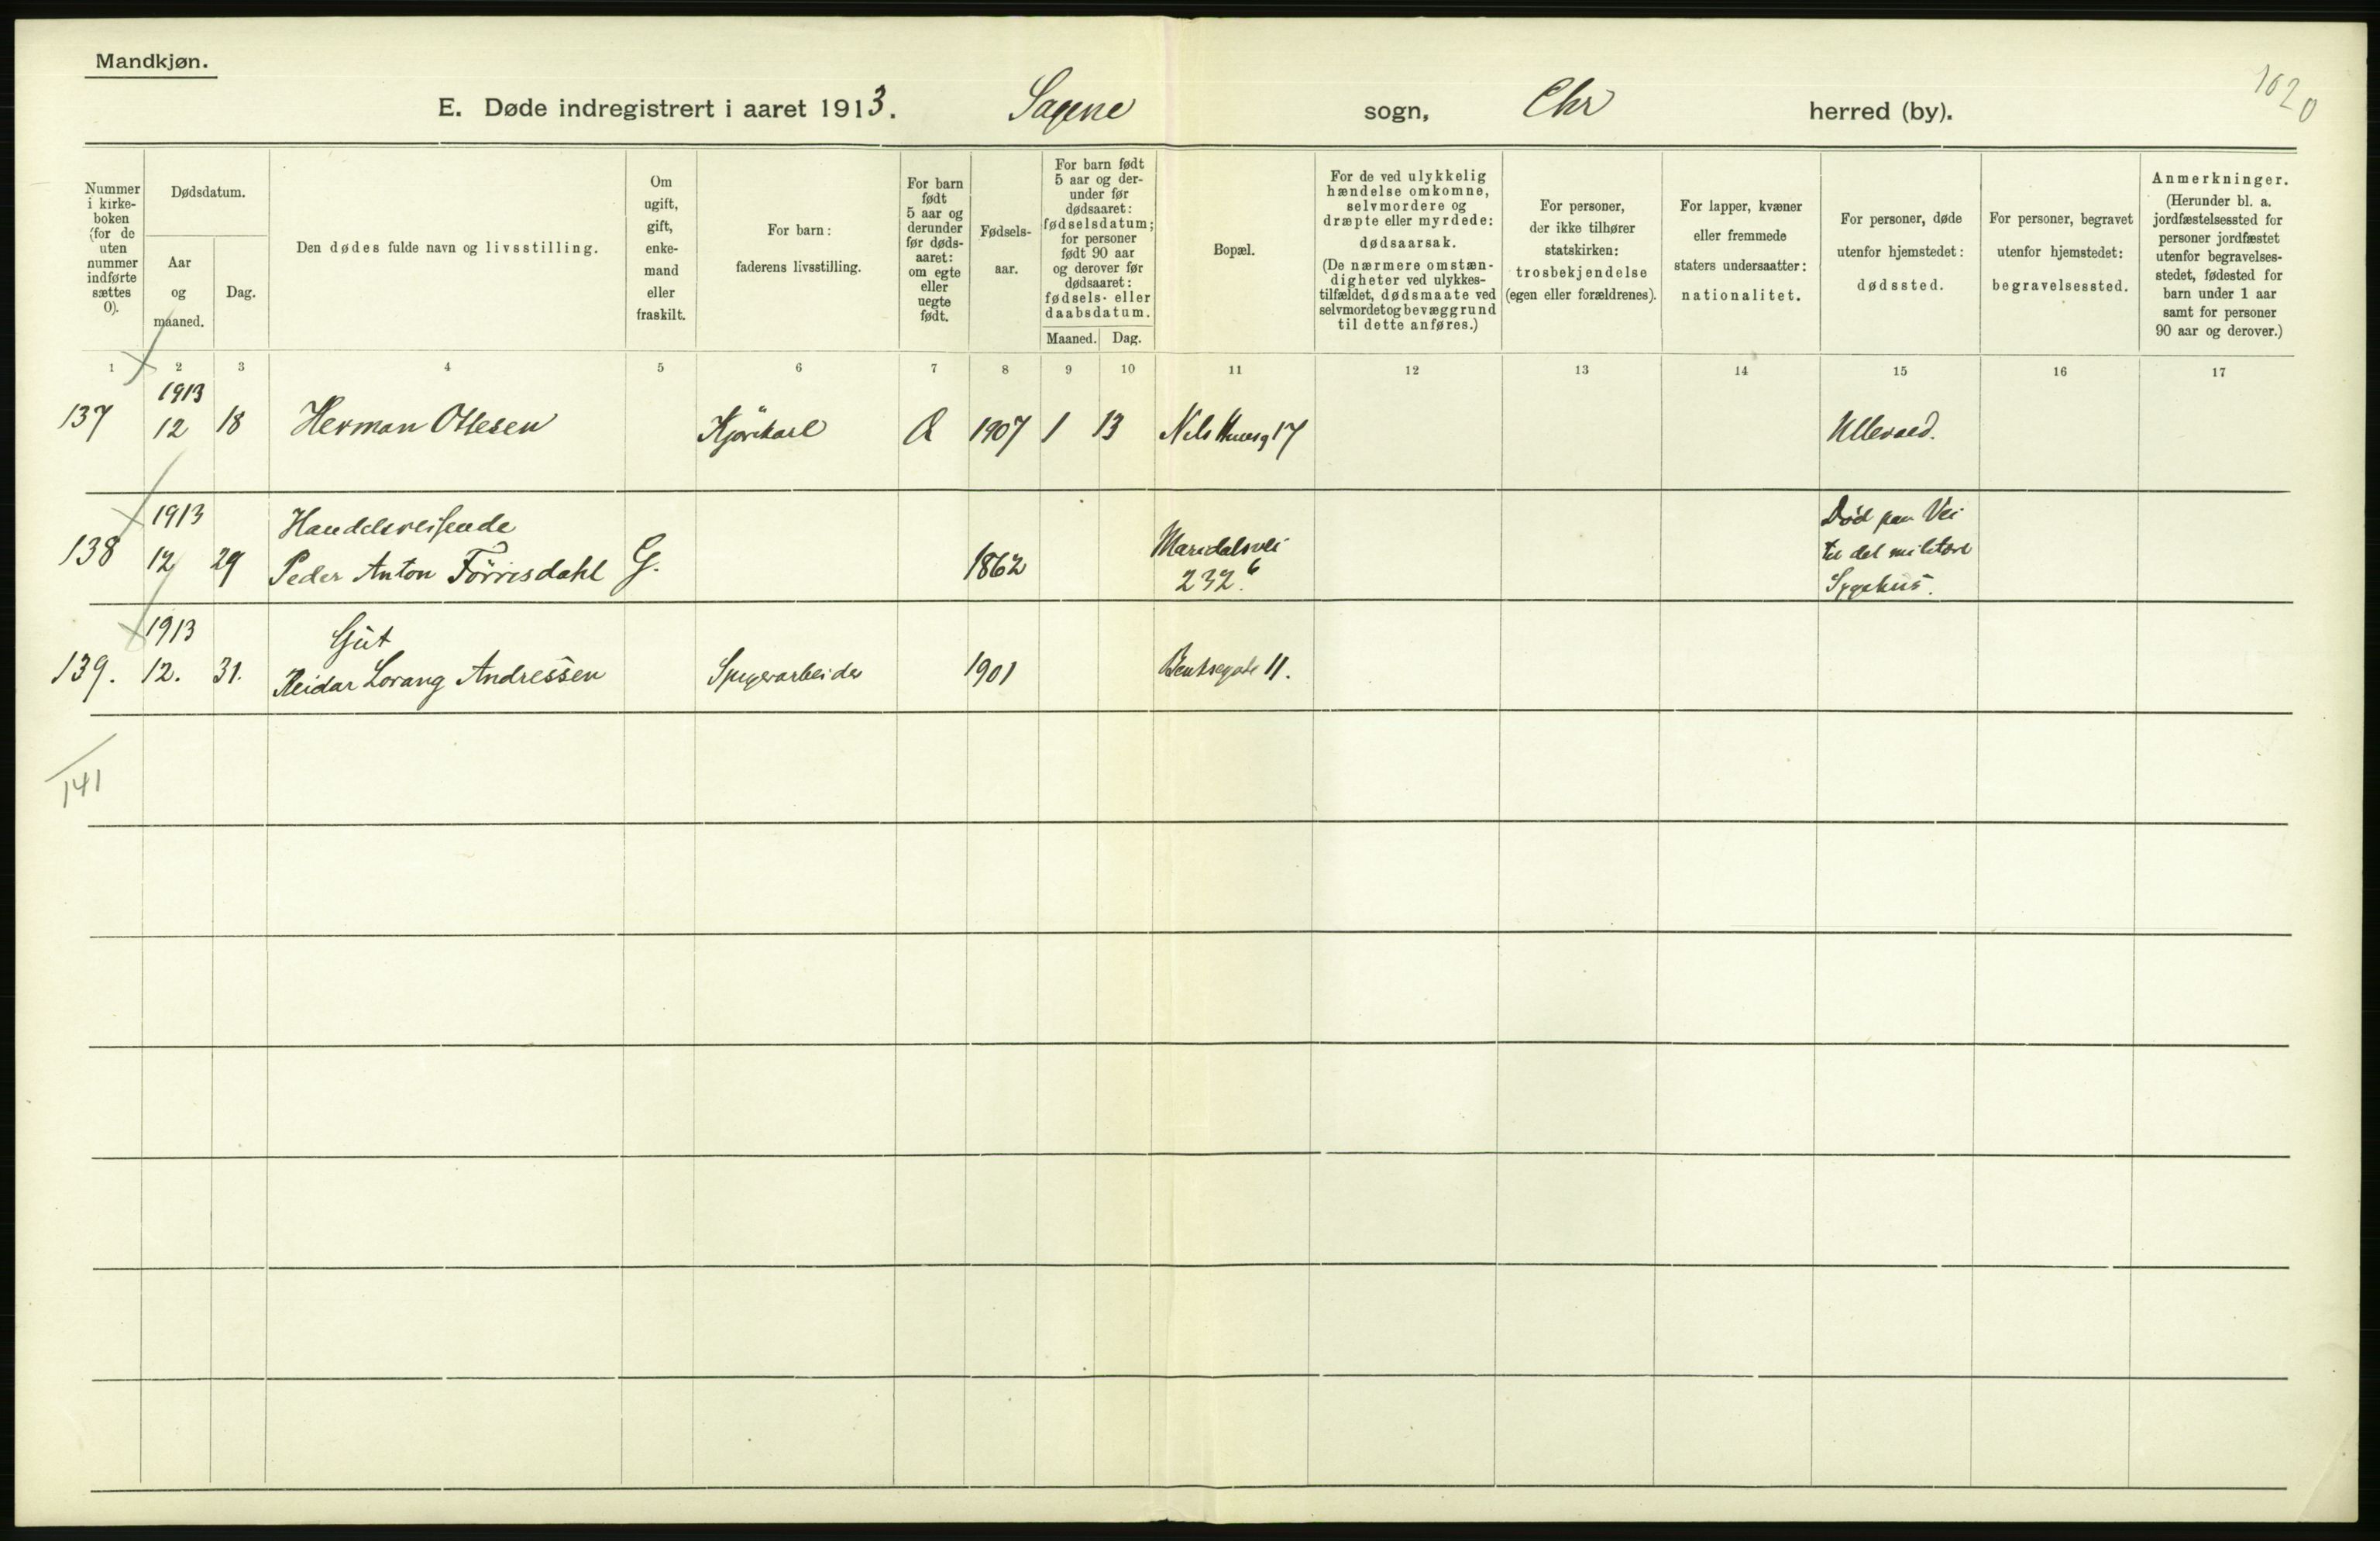 Mandkjøn.
E. Døde indregistrert i aaret 1913. Sagene sogn, Chr herred (by).
1020
Nummer i kirke- boken (for de uten nummer indførte sættes 0).
Dødsdatum.
Aar og maaned.
Dag.
Den dødes fulde navn og livsstilling.
Om ugift, gift, enke- mand eller fraskilt.
For barn: faderens livsstilling.
For barn født 5 aar og derunder før døds- aaret: om egte eller uegte født.
Fødsels- aar.
For barn født 5 aar og der- under før dødsaaret: fødselsdatum; for personer født 90 aar og derover før dødsaaret: fødsels- eller daabsdatum.
Maaned. Dag.
Bopæl.
For de ved ulykkelig hændelse omkomne, selvmordere og dræpte eller myrdede: dødsaarsak. (De nærmere omstæn- digheter ved ulykkes- tilfældet, dødsmaate ved selvmordet og bevæggrund til dette anføres.)
For personer, der ikke tilhører statskirken: trosbekjendelse (egen eller forældrenes).
For lapper, kvæner eller fremmede staters undersaatter: nationalitet.
For personer, døde utenfor hjemstedet: dødssted.
For personer, begravet utenfor hjemstedet: begravelsessted.
Anmerkninger. (Herunder bl. a. jordfæstelsessted for personer jordfæstet utenfor begravelses- stedet, fødested for barn under 1 aar samt for personer 90 aar og derover.)
1 2 3 4 5 6 7 8 9 10 11 12 13 14 15 16 17
1913
137 12 18 Herman Ottesen Kjørekarl 1907 1 13 Nils Huusg 17 Ullevaal.
1913 Handelsreisende Død paa Vei
138 12 29 Peder Anton Förrisdahl G. 1862 Maridalsvei til det militære
232.6 Sygehus.
1913 Gut
139. 12. 31. Reidar Lorang Andressen Spigerarbeider 1901 Bentsegate 11.
141